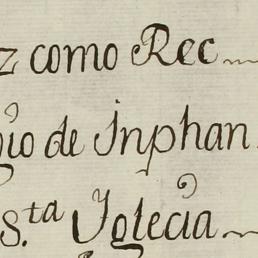 z como Rec
gio de Inphan
S.ta Iglecia